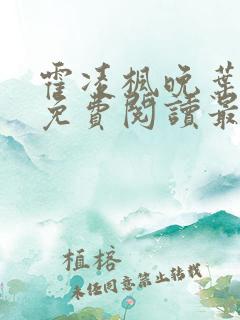 霍凌楓晚葉
免費閱讀最
植榕
未任同意禁止转载